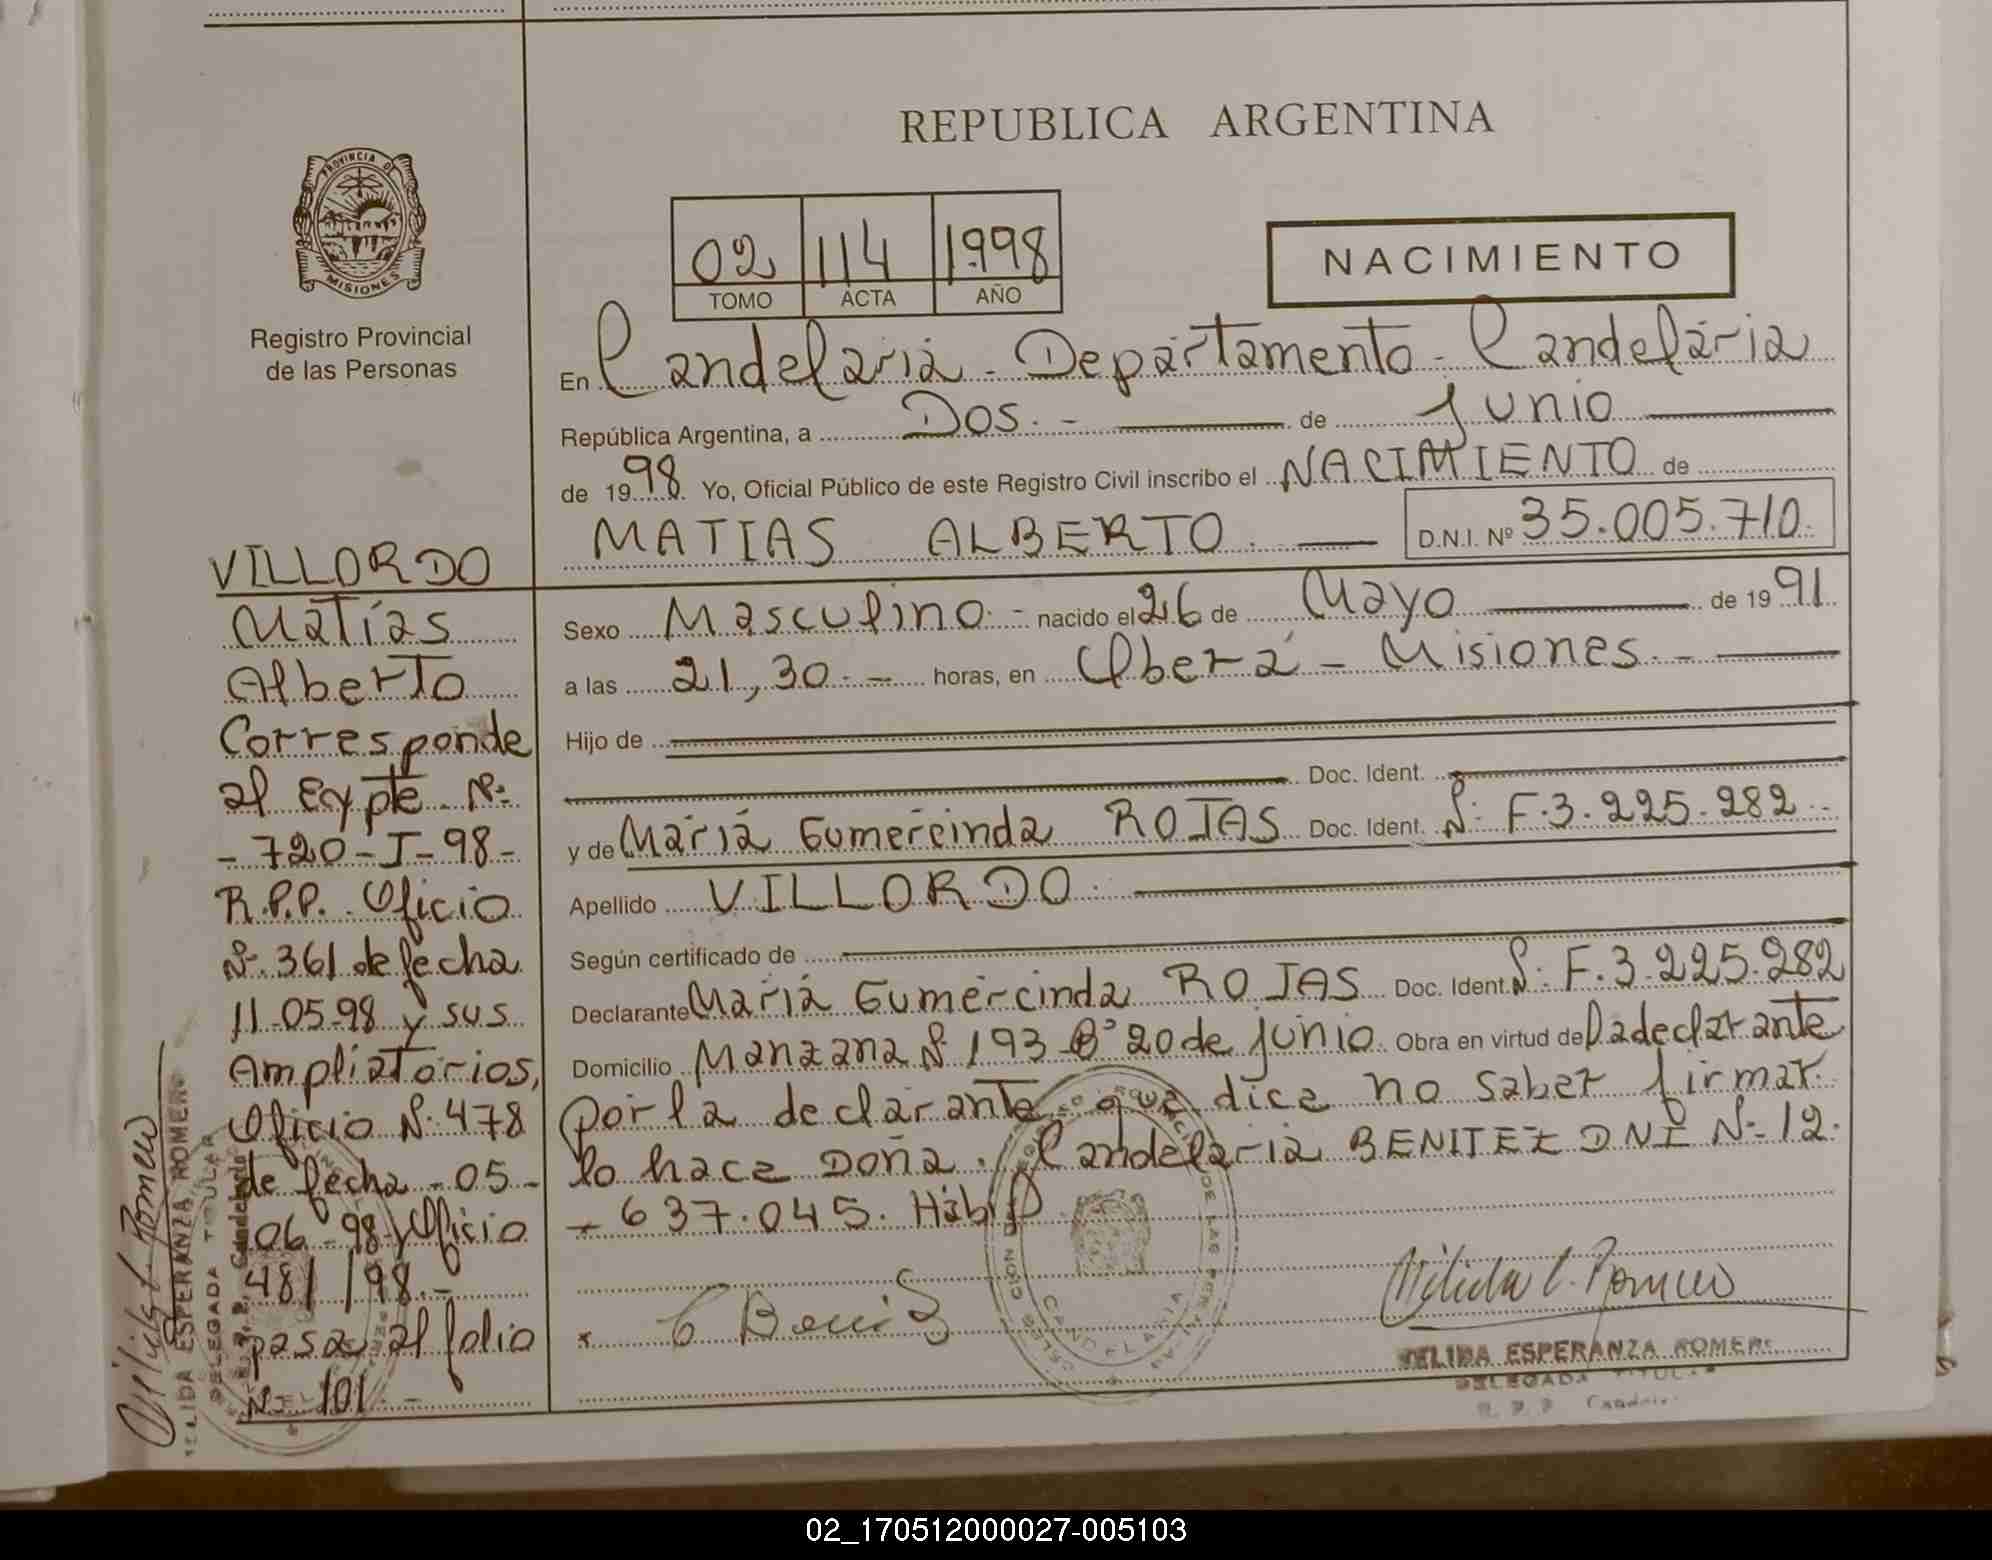 REPUBLICA ARGENTINA
PROVINCIA DE
MISIONES
Registro Provincial
de las Personas
02 114 1998
TOMO ACTA AÑO
NACIMIENTO
En Candelaria - Departamento - Candelaria
República Argentina, a Dos. - de Junio
de 1998. Yo, Oficial Público de este Registro Civil inscribo el NACIMIENTO de
MATIAS ALBERTO. D.N.I. Nº 35.005.710.
Sexo Masculino. - nacido el 26 de Mayo de 1991
a las 21,30. - horas, en Oberá - Misiones. -
Hijo de
Doc. Ident.
y de Maria Gumercinda ROJAS Doc. Ident. Nº F.3.225.282
Apellido VILLORDO.
Según certificado de
Declarante Maria Gumercinda ROJAS Doc. Ident. Nº F.3.225.282
Domicilio Manzana Nº 193 Bº 20 de Junio. Obra en virtud de La declarante
por la declarante que dice no saber firmar
lo hace Doña. Candelaria BENITEZ DNI Nº 12.
- 637.045. Hábil
VILLORDO
Matías
Alberto
Corresponde
al Expte. Nº
- 720 - I - 98 -
R.P.P. Oficio
Nº 361 de fecha
11-05-98 y sus
Ampliatorios,
Oficio Nº 478
de fecha - 05 -
06 - 98 y Oficio
481/98. -
pasa al folio
Nº 101. -
NELIDA ESPERANZA ROMERO
DELEGADA TITULAR
R. P. P. Candelaria
NELIDA ESPERANZA ROMERO
DELEGADA TITULAR
R. P. P. Candelaria
02_170512000027-005103